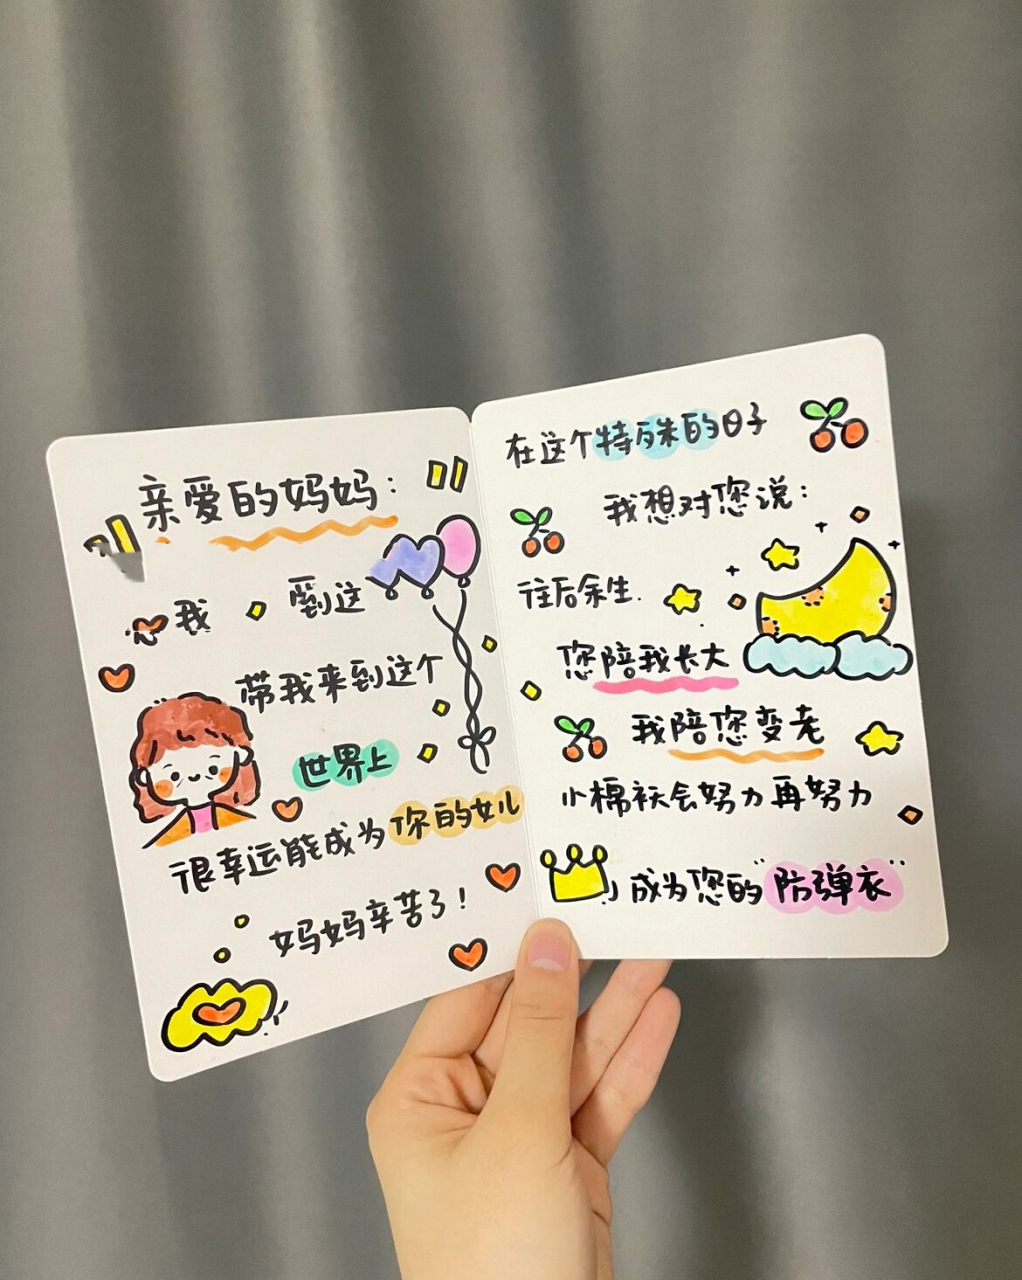 亲爱的妈妈：
我 到这
带我来到这个
世界上
很幸运能成为你的女儿
妈妈辛苦了！
在这个特殊的日子
我想对您说：
往后余生.
您陪我长大
我陪您变老
小棉袄会努力再努力
成为您的"防弹衣"